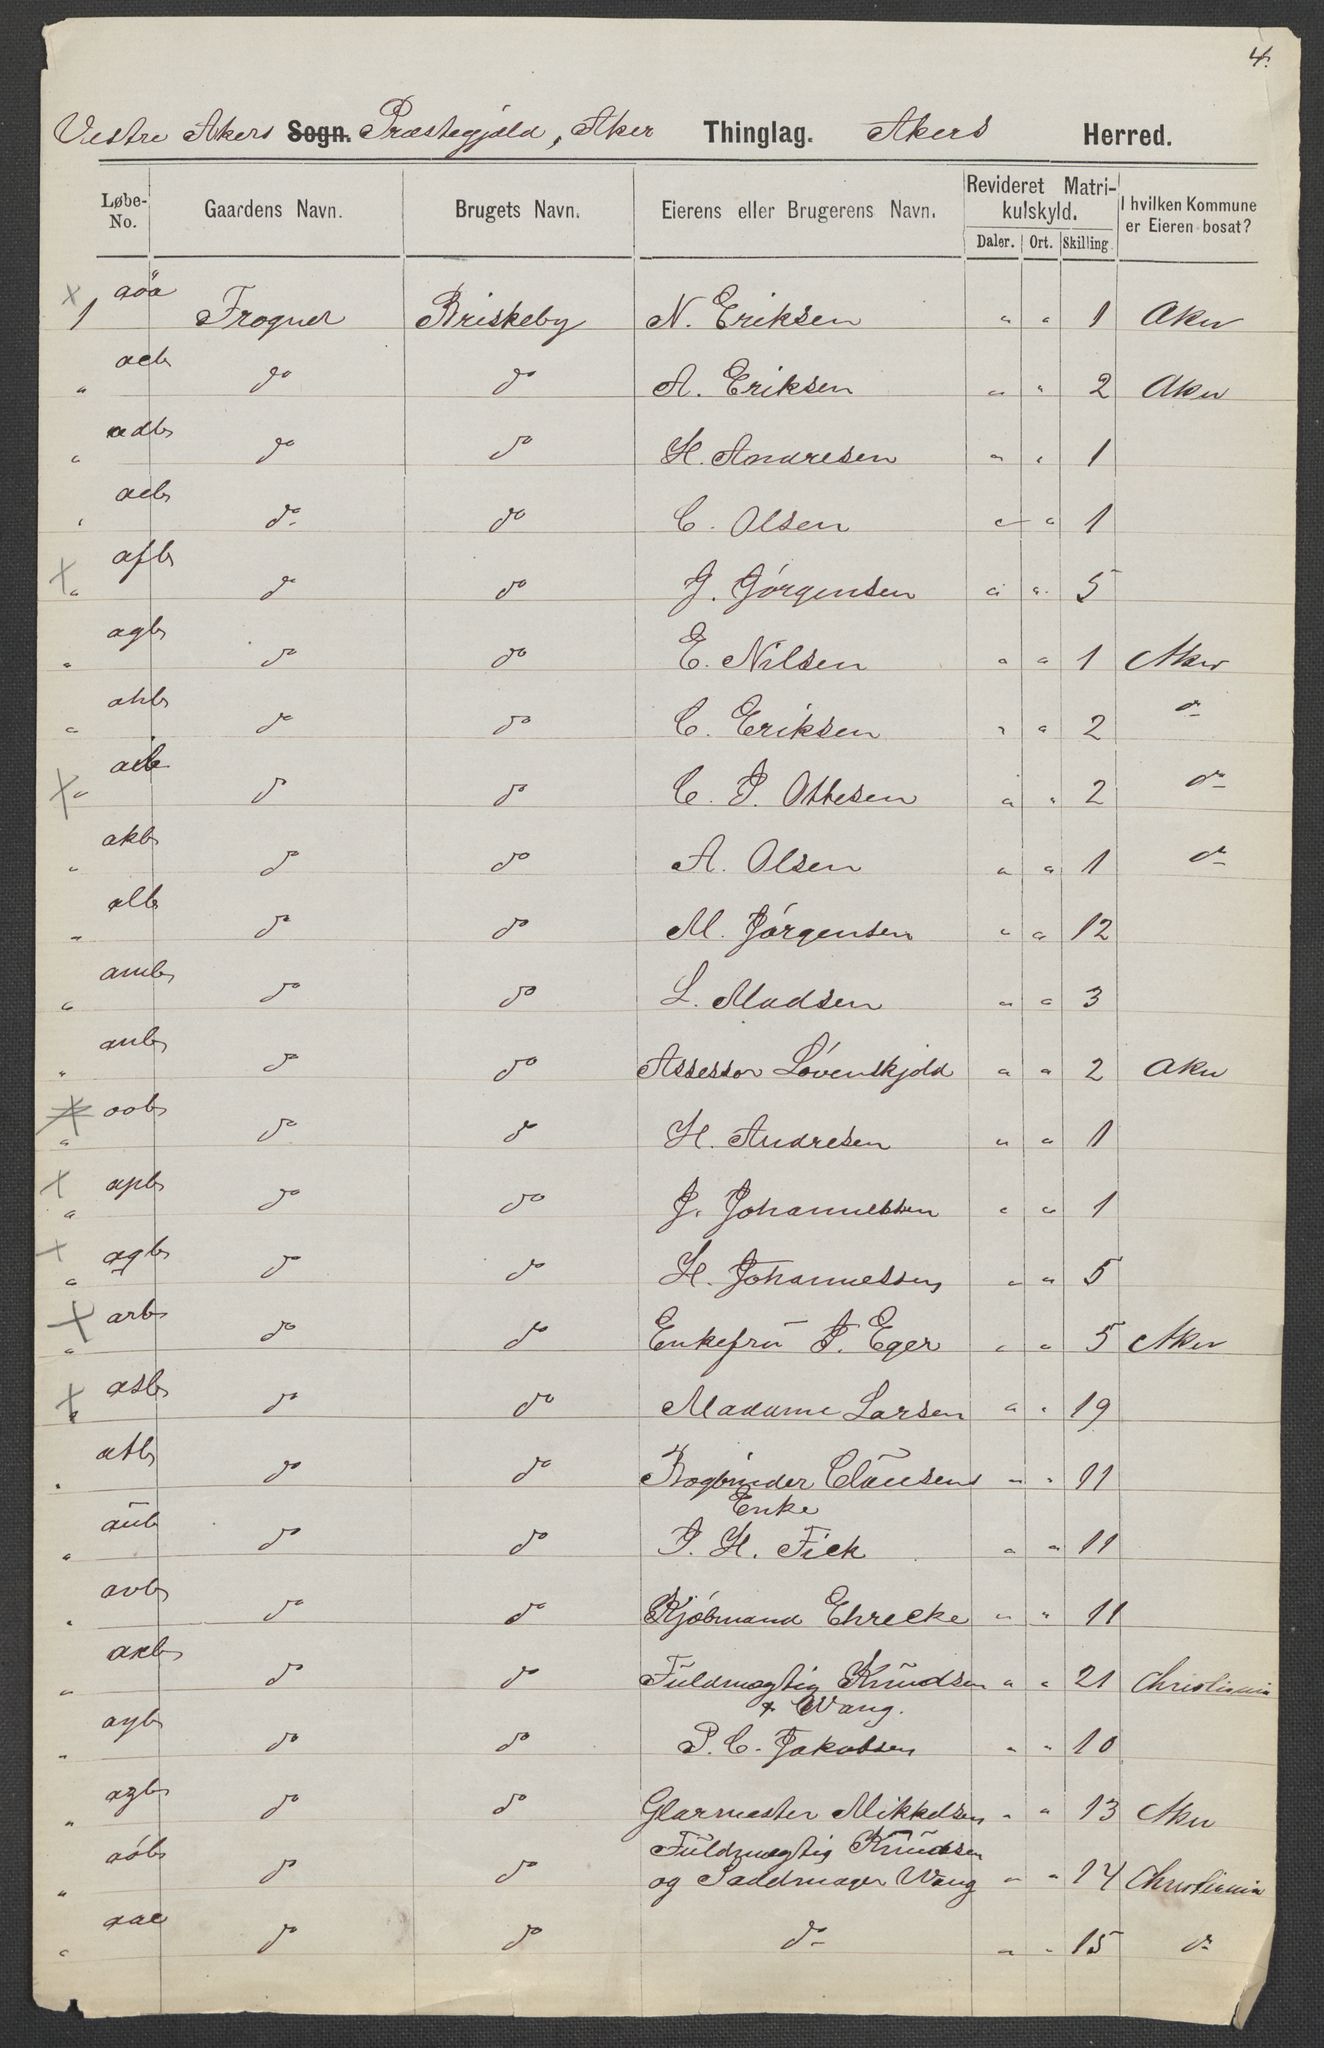 4.
Vestre Akers Sogn. Præstegjæld, Aker Thinglag. Akers Herred.
Løbe-No. Gaardens Navn. Brugets Navn. Eierens eller Brugerens Navn. Revideret Matrikulskyld. Daler. Ort. Skilling I hvilken Kommune er Eieren bosat?
x 1 aöa Frogner Briskeby N. Eriksen " " 1 Aker
" acb do do A. Eriksen " " 2 Aker
" adb do do H. Andresen " " 1
" aeb do do C. Olsen " " 1
x " afb do do J. Jørgensen " " 5
" agb do do E. Nilsen " " 1 Aker
" ahb do do C. Eriksen " " 2 do
x " aib do do C. P. Ottesen " " 2 do
" akb do do A. Olsen " " 1 do
" alb do do M. Jørgensen " " 12
" amb do do L. Madsen " " 3
" anb do do Assessor Løvenskjold " " 2 Aker
x " aob do do H. Andresen " " 1
x " apb do do J. Johannessen " " 1
x " aqb do do H. Johannessen " " 5
x " arb do do Enkefru P. Eger " " 5 Aker
x " asb do do Madame Larsen " " 19
" atb do do Bogbinder Clausens " " 11
Enke
" aub do do P. H. Fick " " 11
" avb do do Kjøbmand Ehrecke " " 11
" axb do do Fuldmægtig Knudsen " " 21 Christiania
& Wang.
" ayb do do P. C. Jakobsen " " 10
" azb do do Glarmester Mikkelsen " " 13 Aker
Fuldmægtig Knudsen
" aöb do do og Sadelmager Wang " " 14 Christiania
" aac do do do " " 15 do